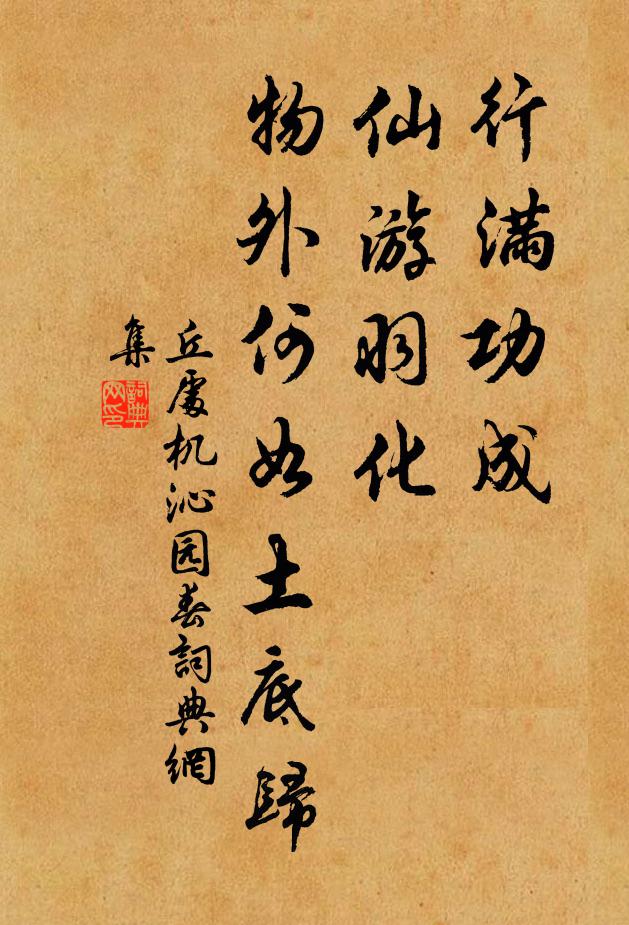 行满功成
仙游羽化
物外何如土底歸
丘處机沁园春詞典網
集
詞典网印